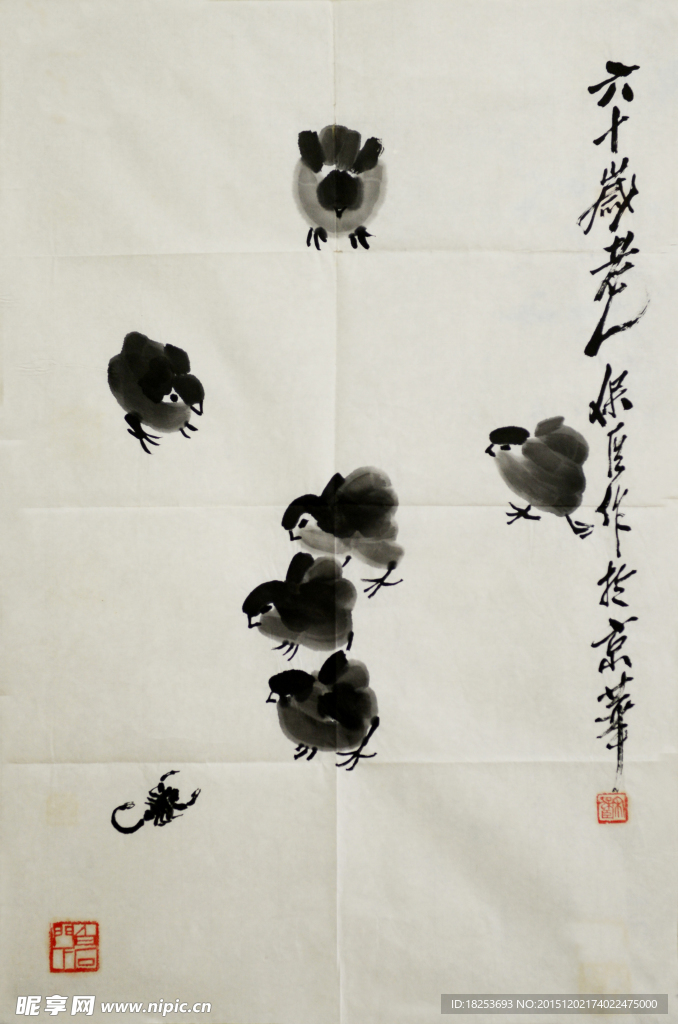 六十歲老人保臣作於京華
昵享网 www.nipic.cn
ID:18253693 NO:20151202174022475000